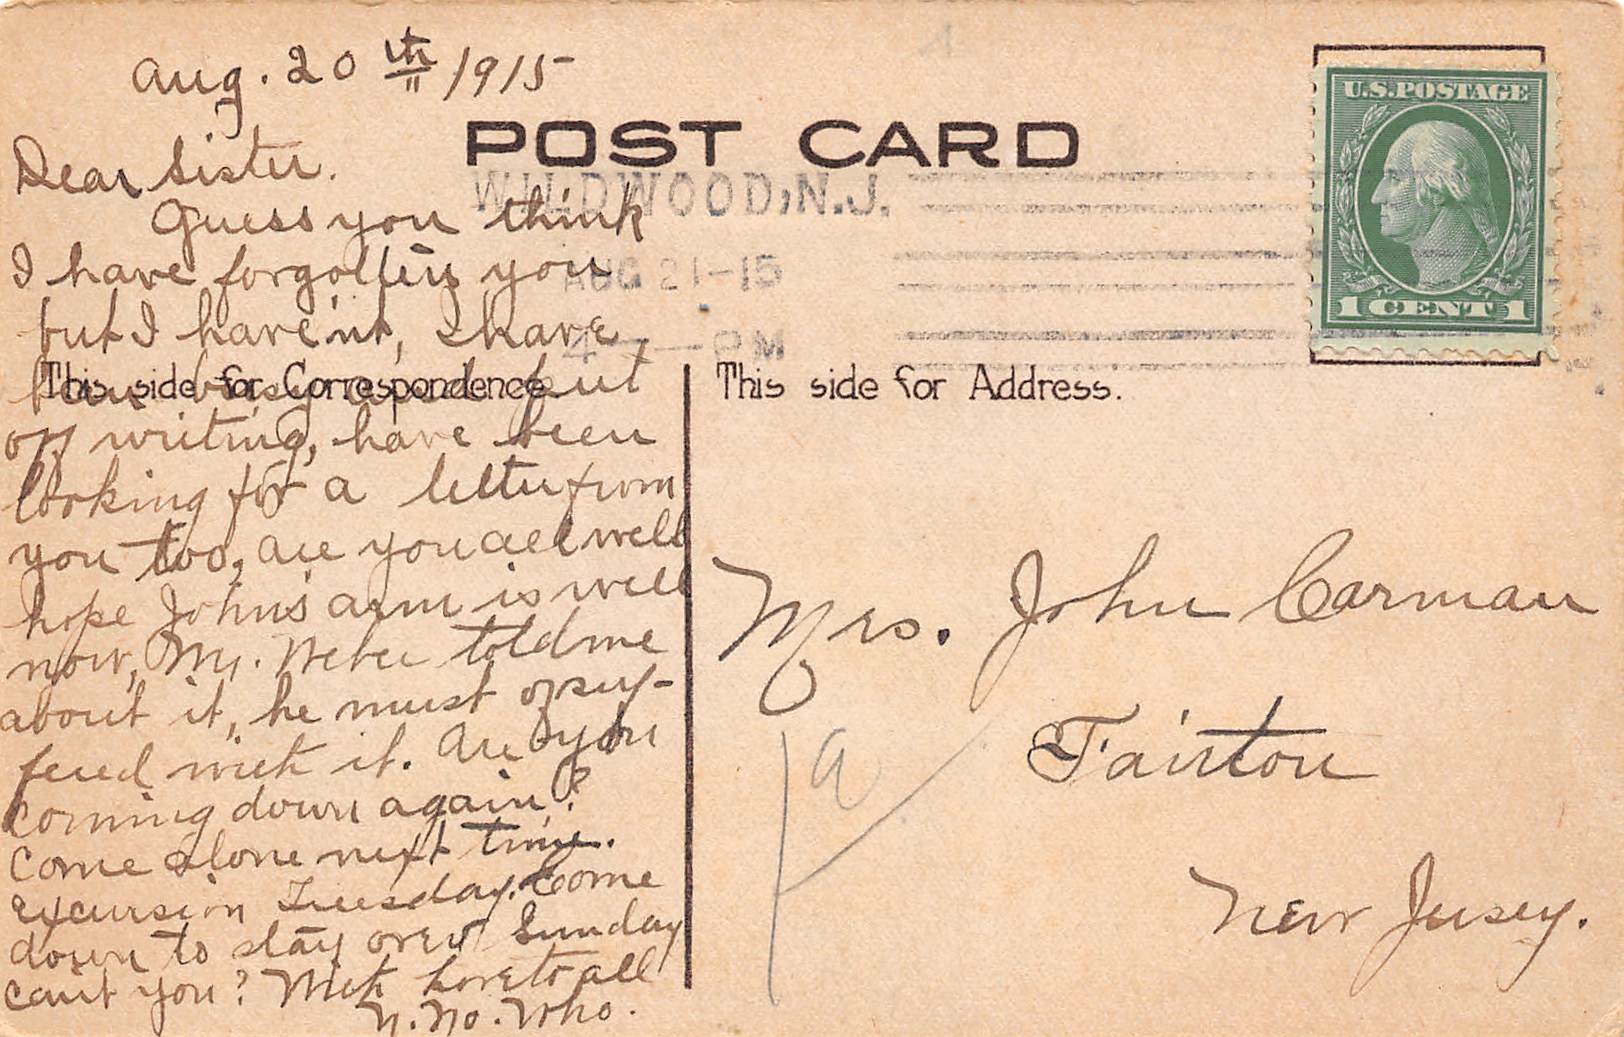 Aug. 20th 1915
POST CARD
WILDWOOD, N.J.
AUG 21-15
4 - PM
U.S. POSTAGE
1 CENT 1
Dear Sister.
Guess you think
I have forgotten you
but I have'nt, I have
been busy and put
off writing, have been
looking for a letter from
you too, are you all well
hope John's arm is well
now, Mr. Weber told me
about it, he must of suf-
fered with it. Are you
coming down again?
Come alone next time.
excursion Tuesday. Come
down to stay over Sunday
cant you? With love to all
U. No. Who.
This side for Correspondence
This side for Address.
Mrs. John Carman
Fairton
New Jersey.